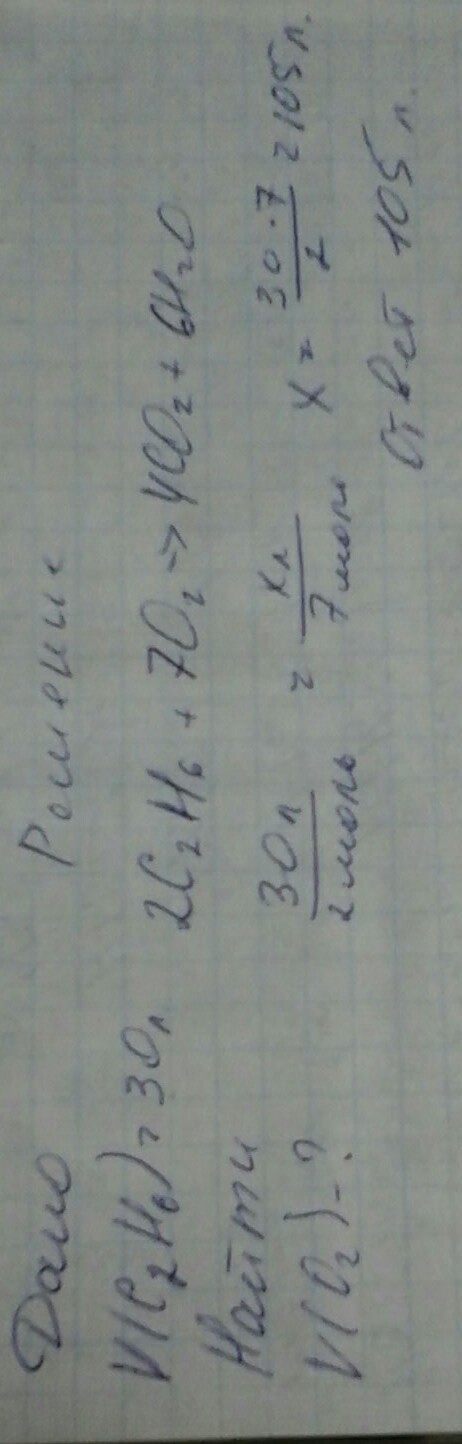 Дано
V(C2H6) = 30 л
Найти
V(O2) - ?
Решение
2C2H6 + 7O2 → 4CO2 + 6H2O
30 л / 2 моль = x л / 7 моль x = 30 · 7 / 2 = 105 л.
Ответ 105 л.